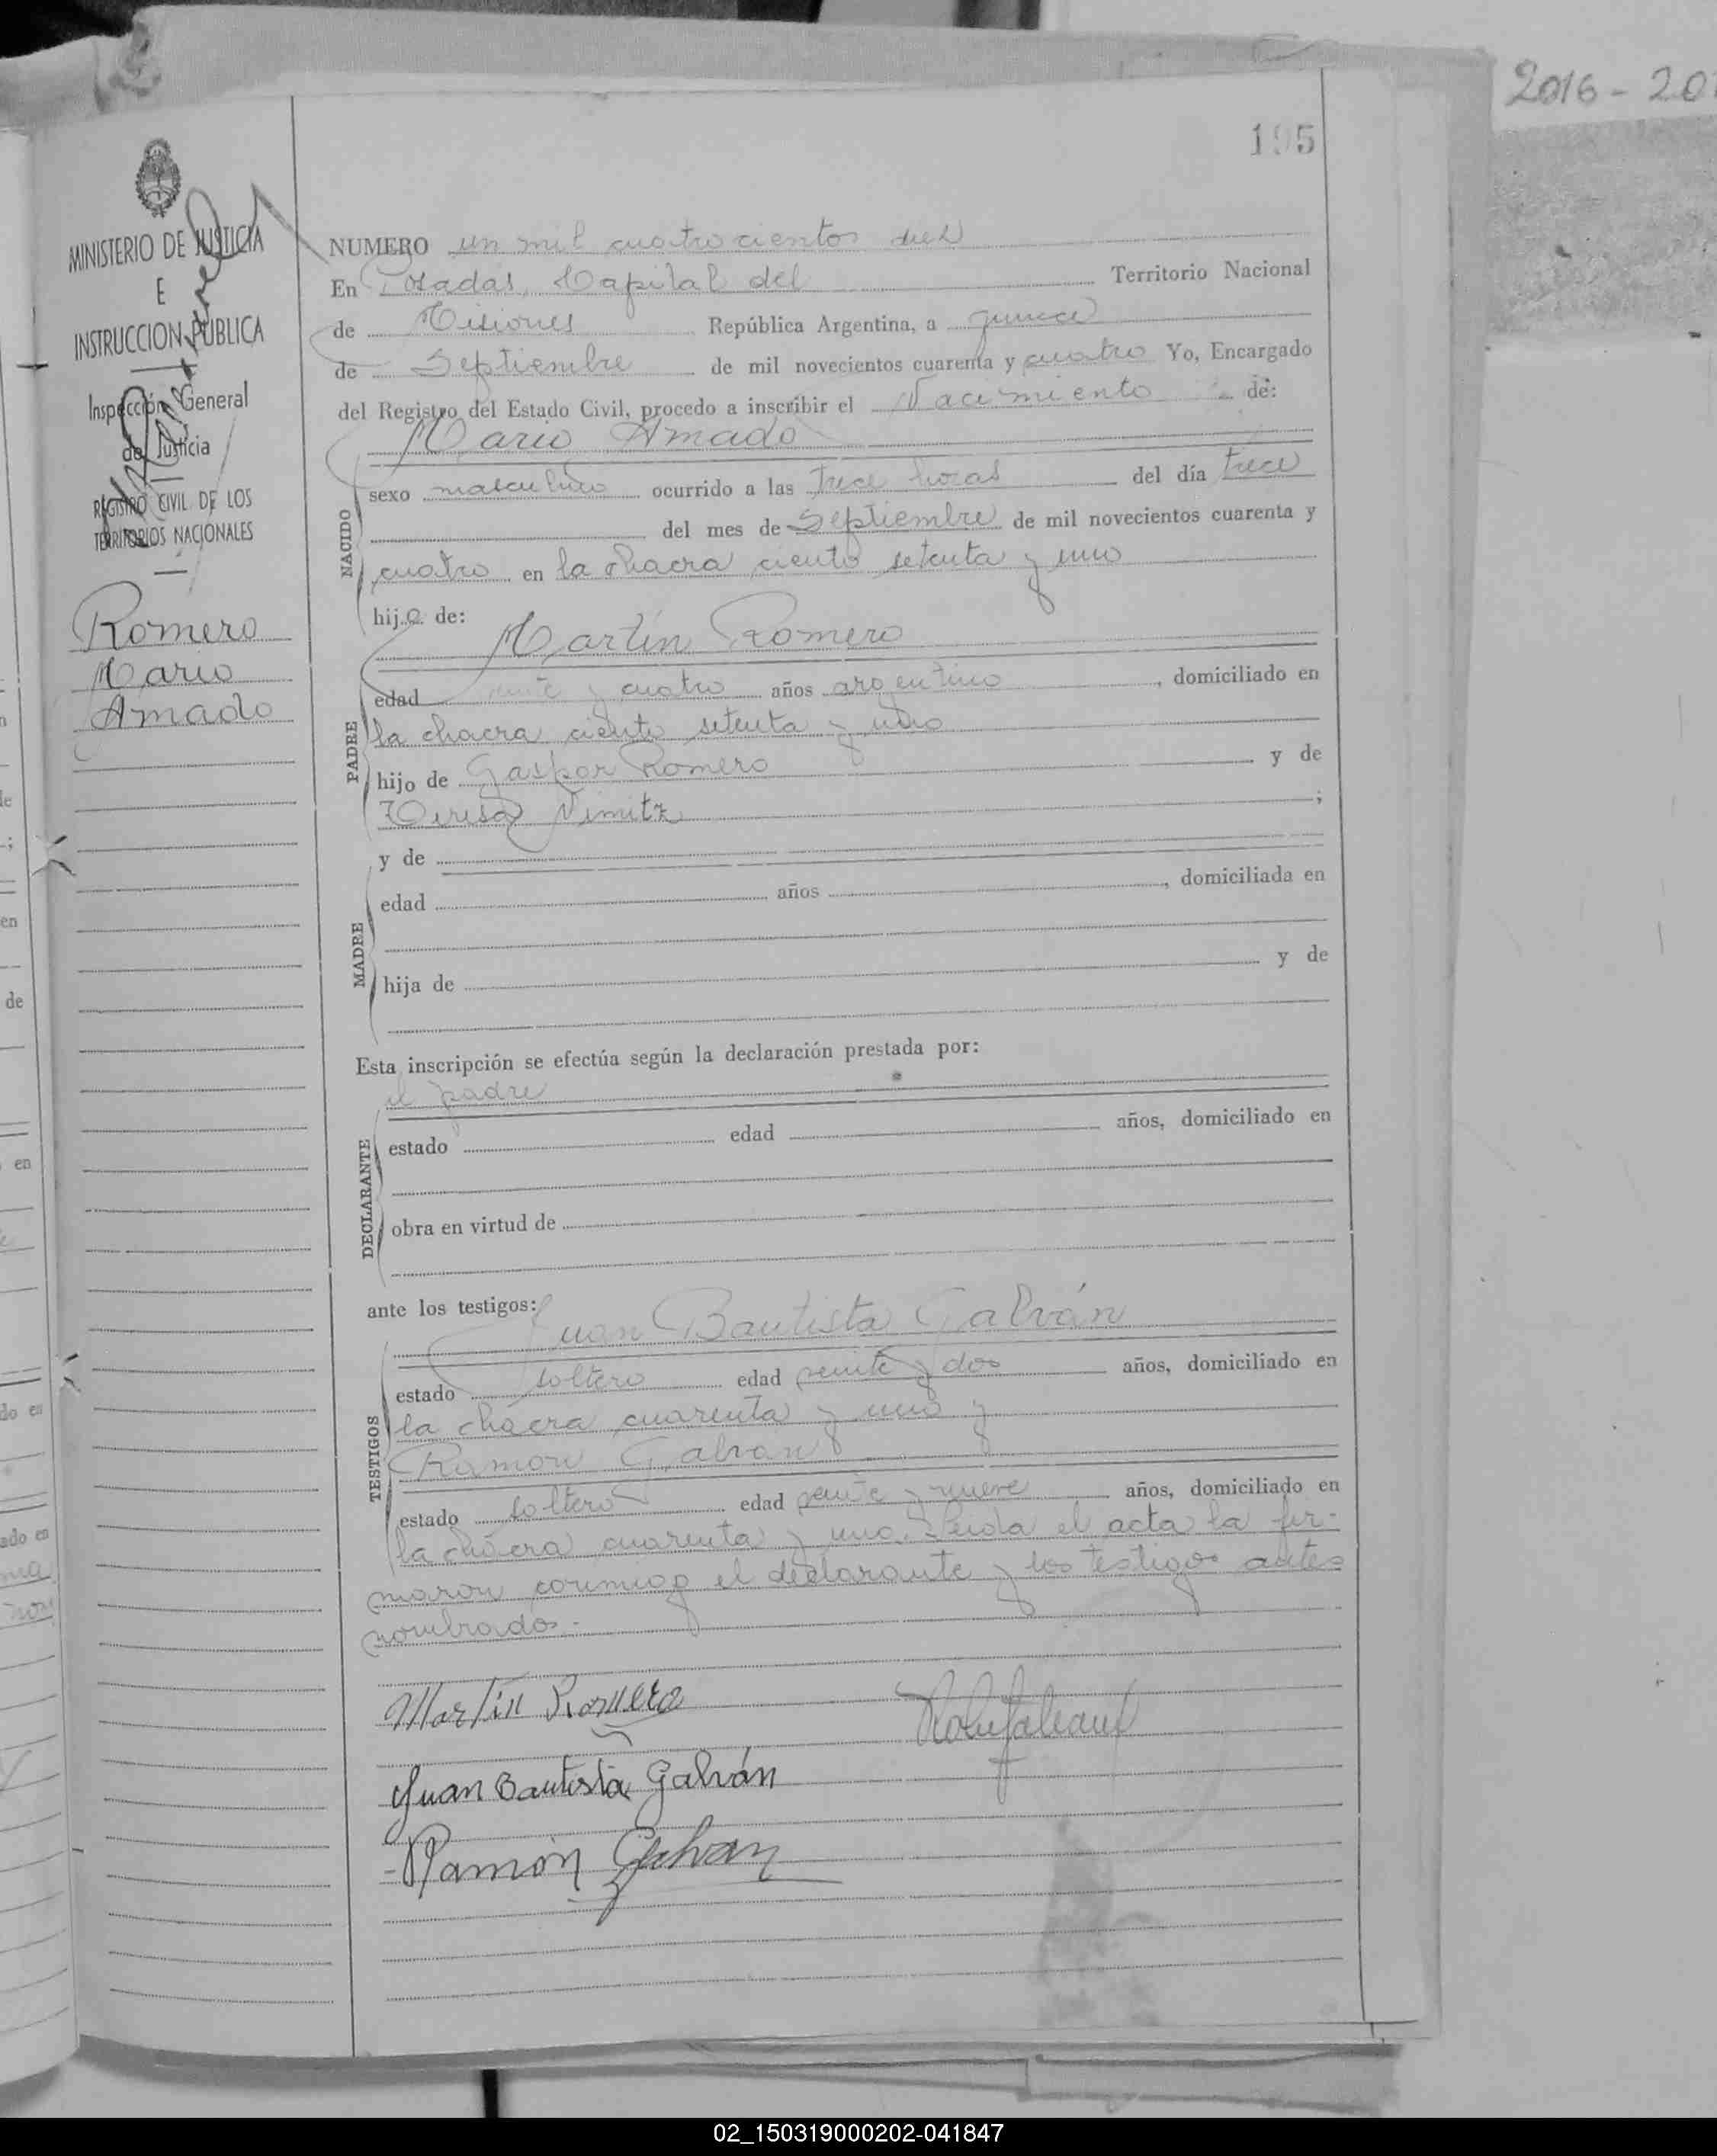 2016 - 20
195
MINISTERIO DE JUSTICIA
E
INSTRUCCION PUBLICA
Inspección General
de Justicia
REGISTRO CIVIL DE LOS
TERRITORIOS NACIONALES
Romero
Mario
Amado
NUMERO un mil cuatrocientos diez
En Posadas, Capital del Territorio Nacional
de Misiones República Argentina, a quince
de Septiembre de mil novecientos cuarenta y cuatro Yo, Encargado
del Registro del Estado Civil, procedo a inscribir el Nacimiento de:
Mario Amado
NACIDO
sexo masculino ocurrido a las trece horas del día trece
del mes de Septiembre de mil novecientos cuarenta y
cuatro en la chacra ciento setenta y uno
hijo de:
Martín Romero
PADRE
edad veinte y cuatro años argentino, domiciliado en
la chacra ciento setenta y uno
hijo de Gaspar Romero y de
Teresa Nimitz ;
y de
MADRE
edad años , domiciliada en
hija de y de
Esta inscripción se efectúa según la declaración prestada por:
el padre
DECLARANTE
estado edad años, domiciliado en
obra en virtud de
ante los testigos:
Juan Bautista Galván
TESTIGOS
estado soltero edad veinte y dos años, domiciliado en
la chacra cuarenta y uno y
Ramon Galvan
estado soltero edad veinte y nueve años, domiciliado en
la chacra cuarenta y uno. Leida el acta la fir-
maron conmigo el declarante y los testigos antes
nombrados.-
Martín Romero
Juan Bautista Galván
Ramón Galvan
en
de
en
do en
ado en
02_150319000202-041847